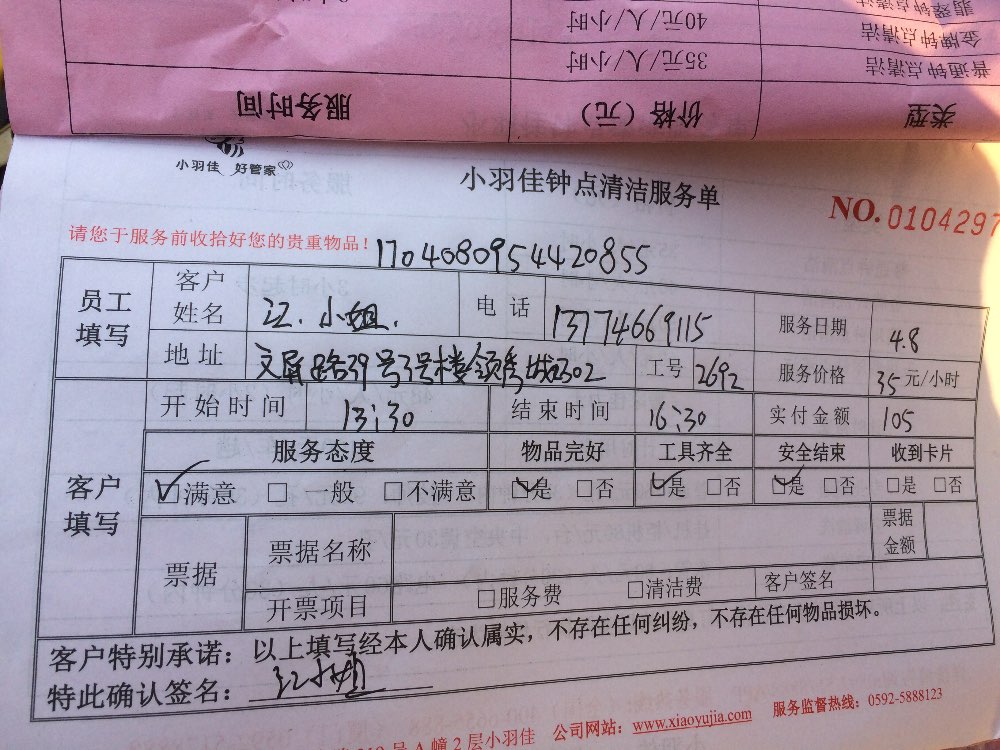 40元/人/小时
金牌钟点清洁
35元/人/小时
普通钟点清洁
服务时间
价格（元）
类型
小羽佳 好管家
小羽佳钟点清洁服务单
NO. 0104297
请您于服务前收拾好您的贵重物品！
1704080954420855
员工填写
客户姓名 江.小姐. 电话 13774669115 服务日期 4.8
地址 文屏路39号3号楼领秀城2302 工号 2692 服务价格 35元/小时
客户填写
开始时间 13:30 结束时间 16:30 实付金额 105
服务态度 物品完好 工具齐全 安全结束 收到卡片
☑满意 □一般 □不满意 ☑是 □否 ☑是 □否 ☑是 □否 □是 □否
票据 票据名称 票据金额
开票项目 □服务费 □清洁费 客户签名
客户特别承诺：以上填写经本人确认属实，不存在任何纠纷，不存在任何物品损坏。
特此确认签名：江小姐
A幢2层小羽佳 公司网站：www.xiaoyujia.com 服务监督热线：0592-5888123